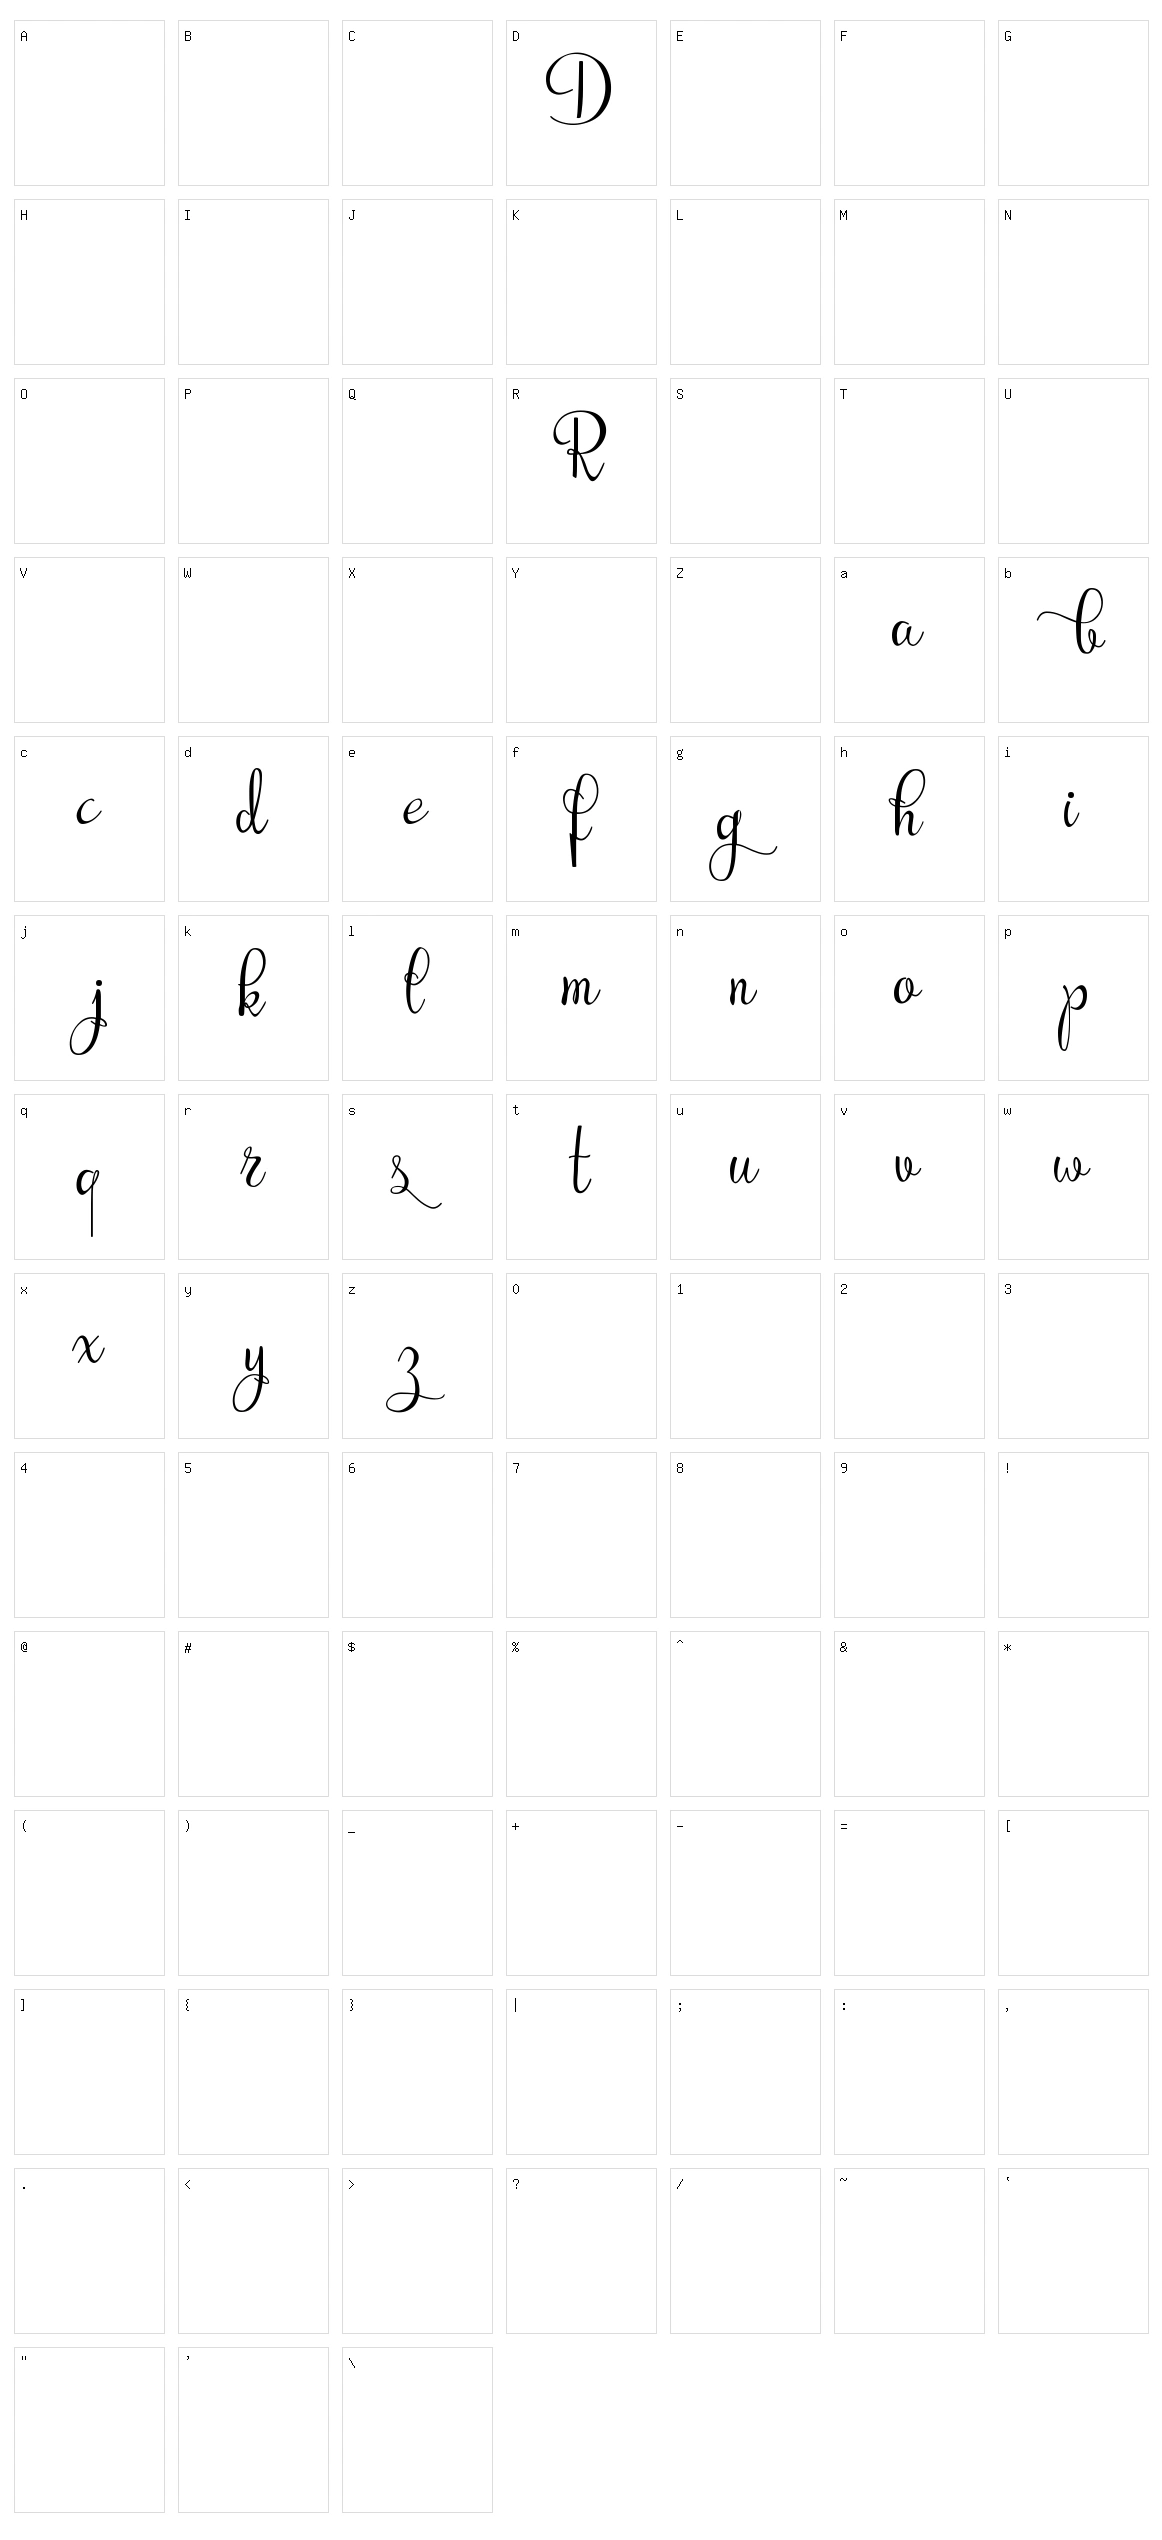 A B C D E F G
D
H I J K L M N
O P Q R S T U
R
V W X Y Z a b
a b
c d e f g h i
c d e f g h i
j k l m n o p
j k l m n o p
q r s t u v w
q r s t u v w
x y z 0 1 2 3
x y z
4 5 6 7 8 9 !
@ # $ % ^ & *
( ) _ + - = [
] { } | ; : ,
. < > ? / ~ `
" ' \